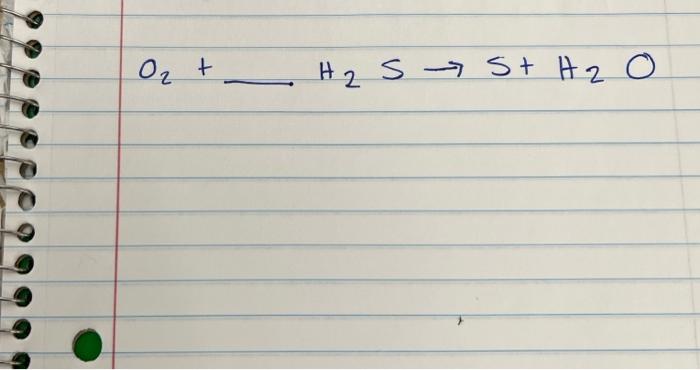 O₂ + ___ H₂ S → S + H₂ O